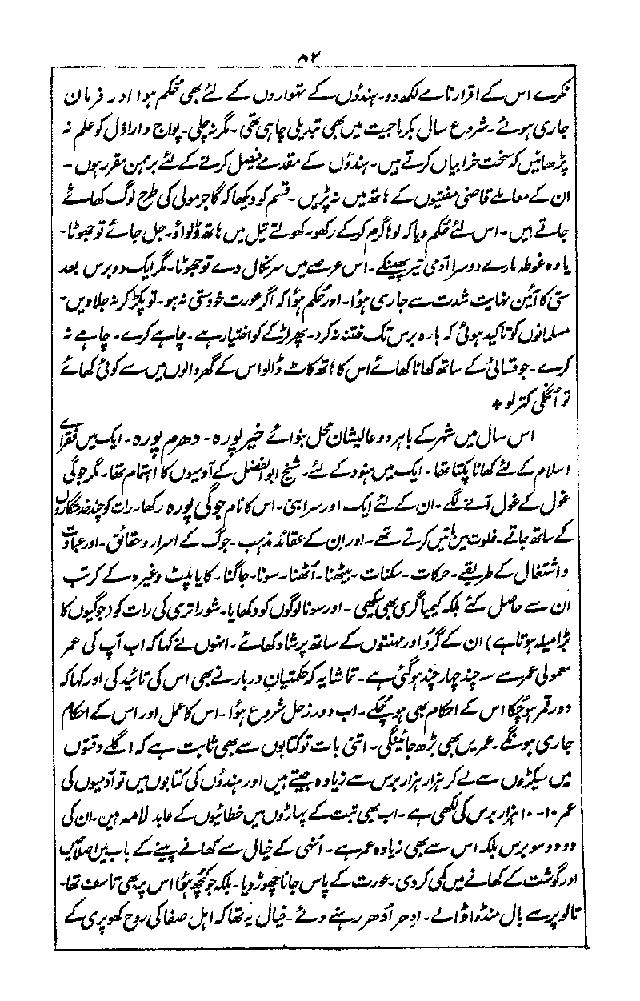 ۸۲
نکرے اس کے اقرار نامے لکھ دو۔ ہندوؤں کے تہواروں کے لئے بھی حکم ہوا اور فرمان
جاری ہوئے۔ شروع سال بکرماجیت میں بھی تبدیلی چاہی تھی۔ مگر نہ چلی۔ پواج و اراذل کو علم نہ
پڑھائیں کہ سخت خرابیاں کرتے ہیں۔ ہندوؤں کے مقدمے فیصل کرنے کے لئے برہمن مقرر ہوں۔
ان کے معاملے قاضی مفتیوں کے ہاتھ میں نہ پڑیں۔ قسم کو دیکھا کہ گاجر مولی کی طرح لوگ کھائے
جاتے ہیں۔ اس لئے حکم دیا کہ لوہا گرم کر کے رکھو۔ کھولتے تیل میں ہاتھ ڈلواؤ۔ جل جائے تو جھوٹا۔
یا وہ غوطہ مارے دوسرا آدمی تیر پھینکے۔ اس عرصے میں سر نکال دے تو جھوٹا۔ مگر ایک دو برس بعد
ستی کا آئین نہایت شدت سے جاری ہوا۔ اور حکم ہوا کہ اگر عورت خود ستی نہ ہو۔ تو پکڑ کر نہ جلاویں۔
مسلمانوں کو تاکید ہوئی کہ بارہ برس تک ختنہ نہ کرو۔ پھر لڑکے کو اختیار ہے۔ چاہے کرے۔ چاہے نہ
کرے۔ جو قسائی کے ساتھ کھانا کھائے اس کا ہاتھ کاٹ ڈالو اس کے گھر والوں میں سے کوئی کھائے
تو اُنگلی کتر لو ٭
اس سال میں شہر کے باہر دو عالیشان محل ہوائے خیر پورہ۔ دھرم پورہ۔ ایک میں فقرائے
اسلام کے لئے کھانا پکتا تھا۔ ایک میں ہنود کے لئے۔ شیخ ابوالفضل کے آدمیوں کا اہتمام تھا۔ مگر جوگی
غول کے غول آنے لگے۔ ان کے لئے ایک اور سرا بنی۔ اس کا نام جوگی پورہ رکھا۔ رات کو چند خدمتگاروں
کے ساتھ جاتے۔ خلوت میں باتیں کرتے تھے۔ اور ان کے عقائد مذہب۔ جوگ کے اسرار و حقائق۔ اور عبادت
و اشتغال کے طریقے۔ حرکات۔ سکنات۔ بیٹھنا۔ اُٹھنا۔ سونا۔ جاگنا۔ کایا پلٹ وغیرہ کے کرتب
ان سے حاصل کئے بلکہ کیمیا گری بھی سیکھی۔ اور سونا لوگوں کو دکھایا۔ شوراتری کی رات کو (جوگیوں کا
بڑا میلہ ہوتا ہے) ان کے گرو اور مہنتوں کے ساتھ پرشاد کھائے۔ انہوں نے کہا کہ اب آپ کی عمر
معمولی عمر سے سہ چند چار چند ہو گئی ہے۔ تماشا یہ کہ حکیمان دربار نے بھی اس کی تائید کی اور کہا کہ
دور قمر ہو چکا اس کے احکام بھی ہو چکے۔ اب دور زحل شروع ہوا۔ اس کا عمل اور اس کے احکام
جاری ہونگے۔ عمریں بھی بڑھ جائینگی۔ اتنی بات تو کتابوں سے بھی ثابت ہے کہ اگلے وقتوں
میں سیکڑوں سے لے کر ہزار ہزار برس سے زیادہ جیتے ہیں اور ہندوؤں کی کتابوں میں تو آدمیوں کی
عمر ۱۰-۱۰ ہزار برس کی لکھی ہے۔ اب بھی تبت کے پہاڑوں میں خطائیوں کے عابد لامہ ہیں۔ ان کی
دو دو سو برس بلکہ اس سے بھی زیادہ عمر ہے۔ انہی کے خیال سے کھانے پینے کے باب میں اصلاحیں
اور گوشت کے کھانے میں کمی کر دی۔ عورت کے پاس جانا چھوڑ دیا۔ بلکہ جو کچھ ہوا اس پر بھی تاسف تھا۔
تالو پر سے بال منڈوا ڈالے۔ ادھر اُدھر رہنے دئے۔ خیال یہ تھا کہ اہل صفا کی روح کھوپری کے